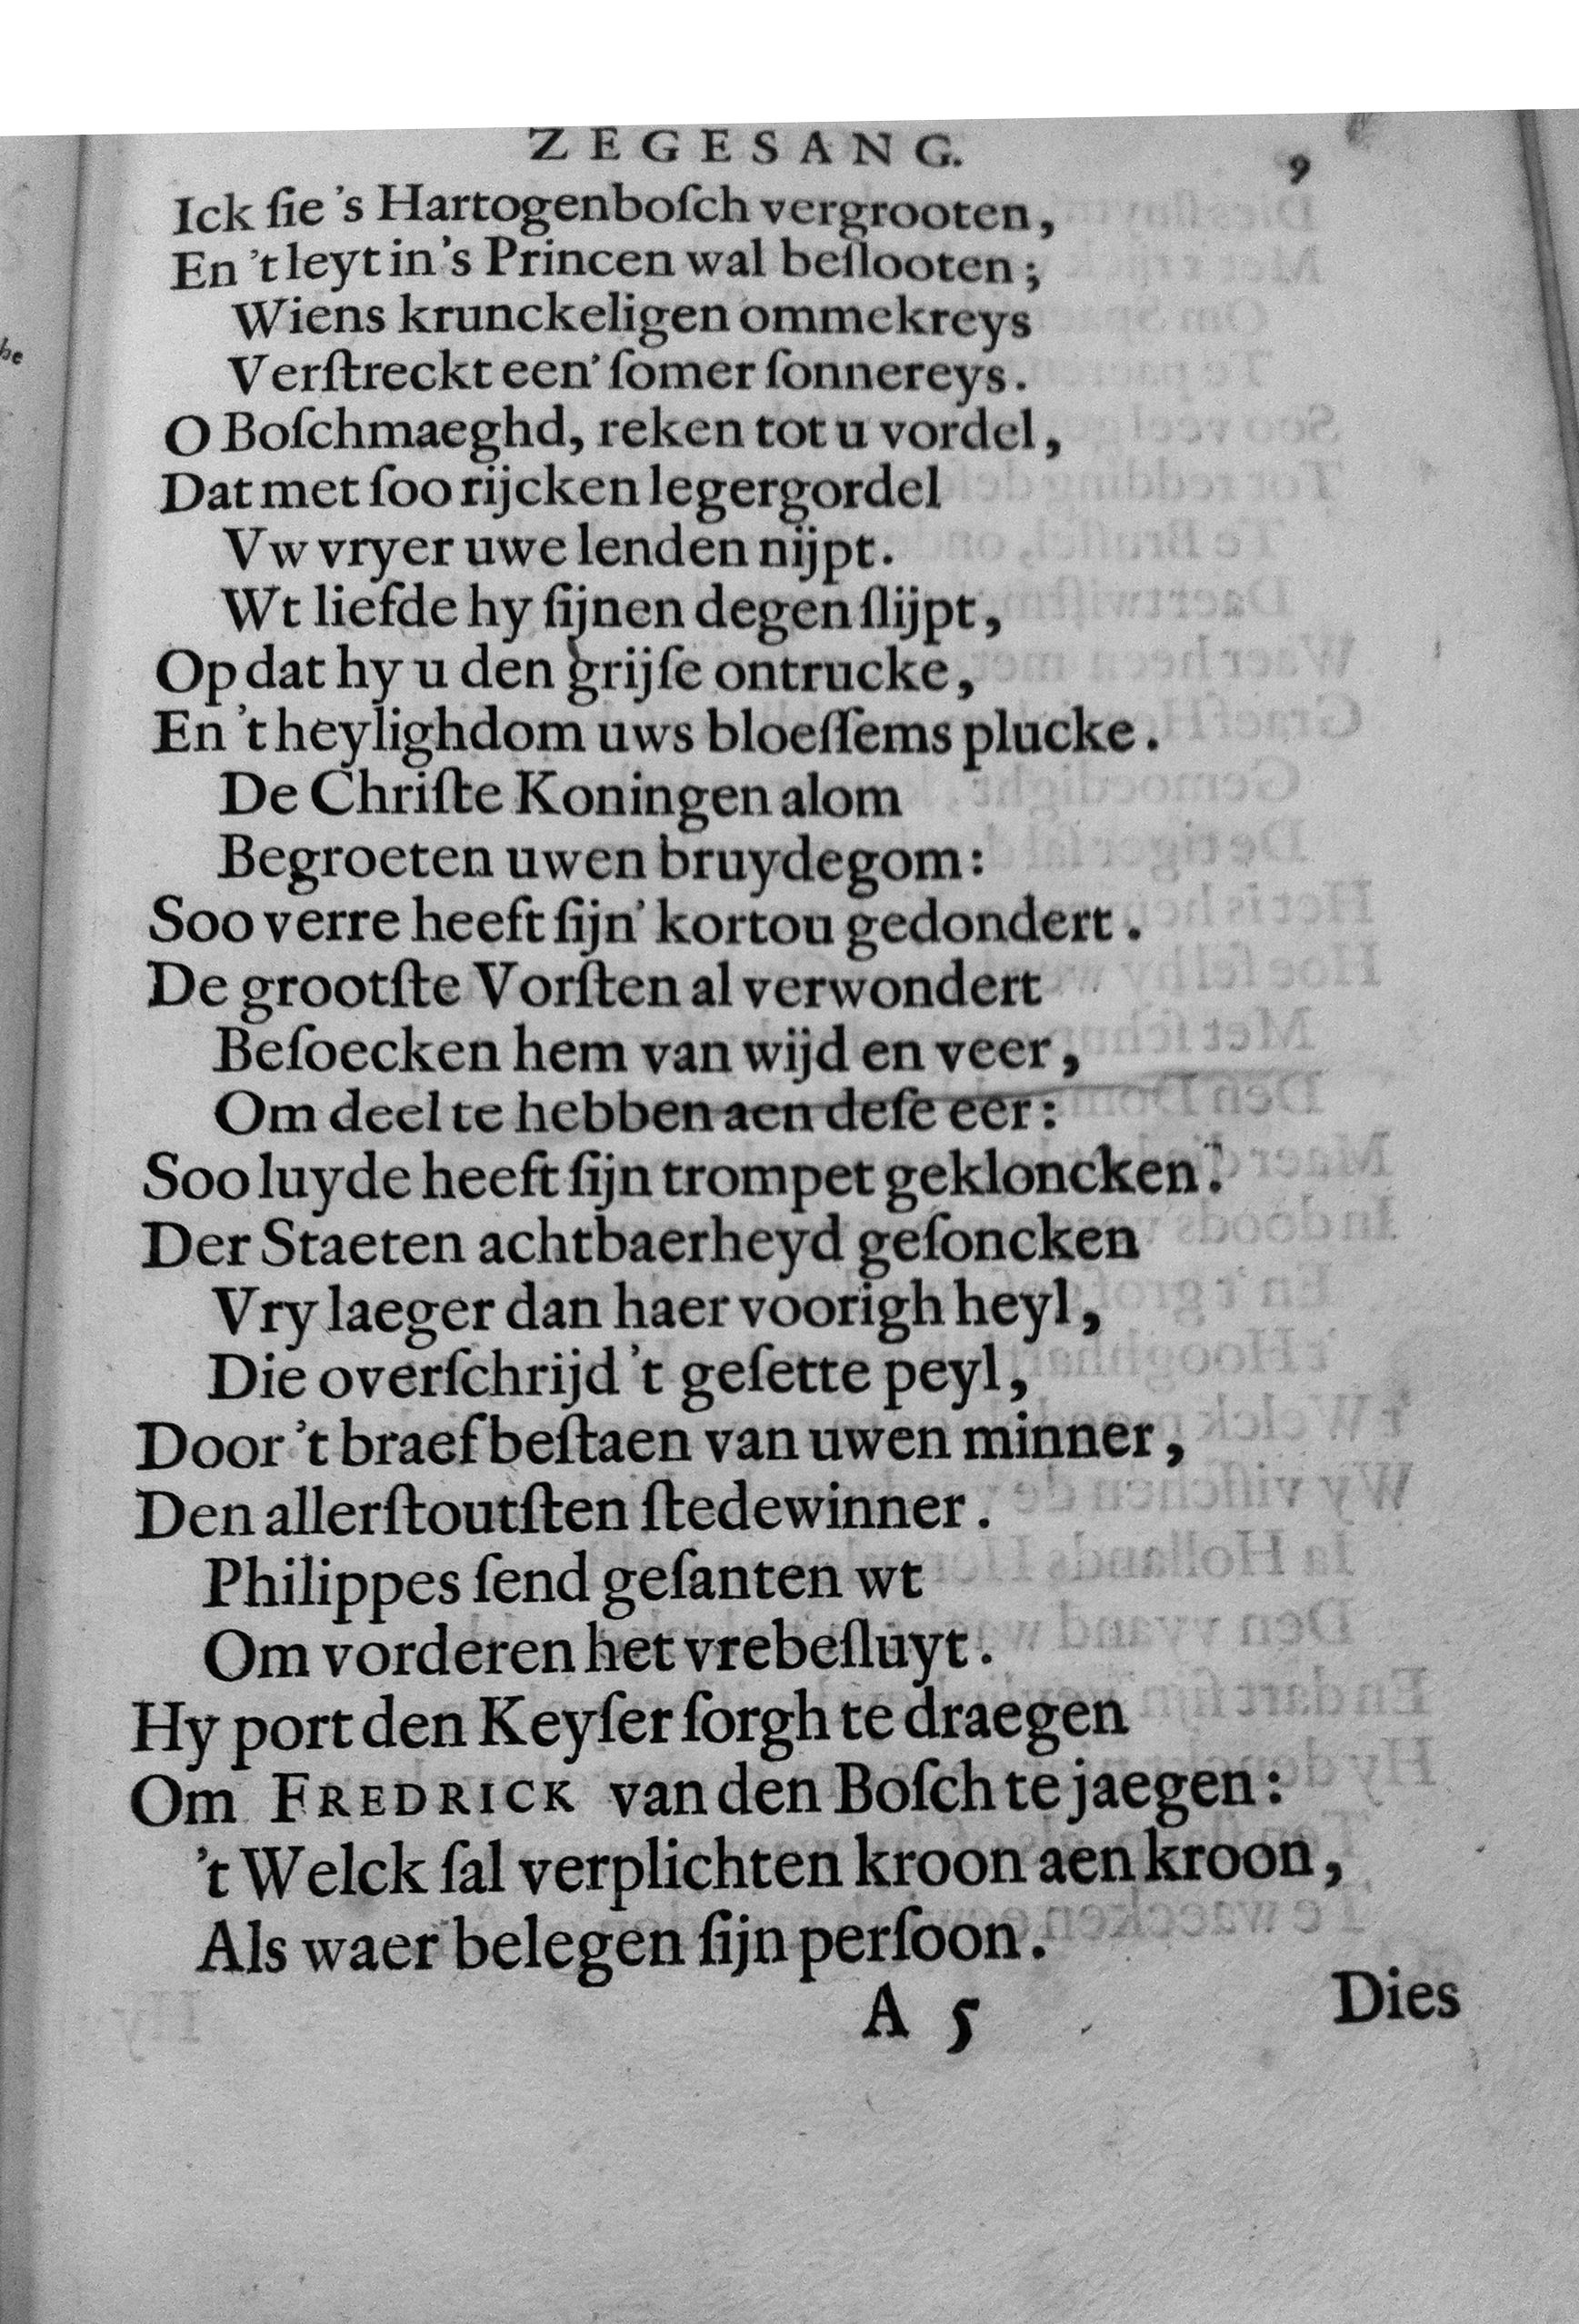 ZEGESANG. 9
Ick ſie 's Hartogenboſch vergrooten,
En 't leyt in 's Princen wal beſlooten;
Wiens krunckeligen ommekreys
Verſtreckt een' ſomer ſonnereys.
O Boſchmaeghd, reken tot u vordel,
Dat met ſoo rijcken legergordel
Vw vryer uwe lenden nijpt.
Wt liefde hy ſijnen degen ſlijpt,
Op dat hy u den grijſe ontrucke,
En 't heylighdom uws bloeſſems plucke.
De Chriſte Koningen alom
Begroeten uwen bruydegom:
Soo verre heeft ſijn' kortou gedondert.
De grootſte Vorſten al verwondert
Beſoecken hem van wijd en veer,
Om deel te hebben aen deſe eer:
Soo luyde heeft ſijn trompet gekloncken.
Der Staeten achtbaerheyd geſoncken
Vry laeger dan haer voorigh heyl,
Die overſchrijd 't geſette peyl,
Door 't braef beſtaen van uwen minner,
Den allerſtoutſten ſtedewinner.
Philippes ſend geſanten wt
Om vorderen het vrebeſluyt.
Hy port den Keyſer ſorgh te draegen
Om FREDRICK van den Boſch te jaegen:
't Welck ſal verplichten kroon aen kroon,
Als waer belegen ſijn perſoon.
A 5 Dies